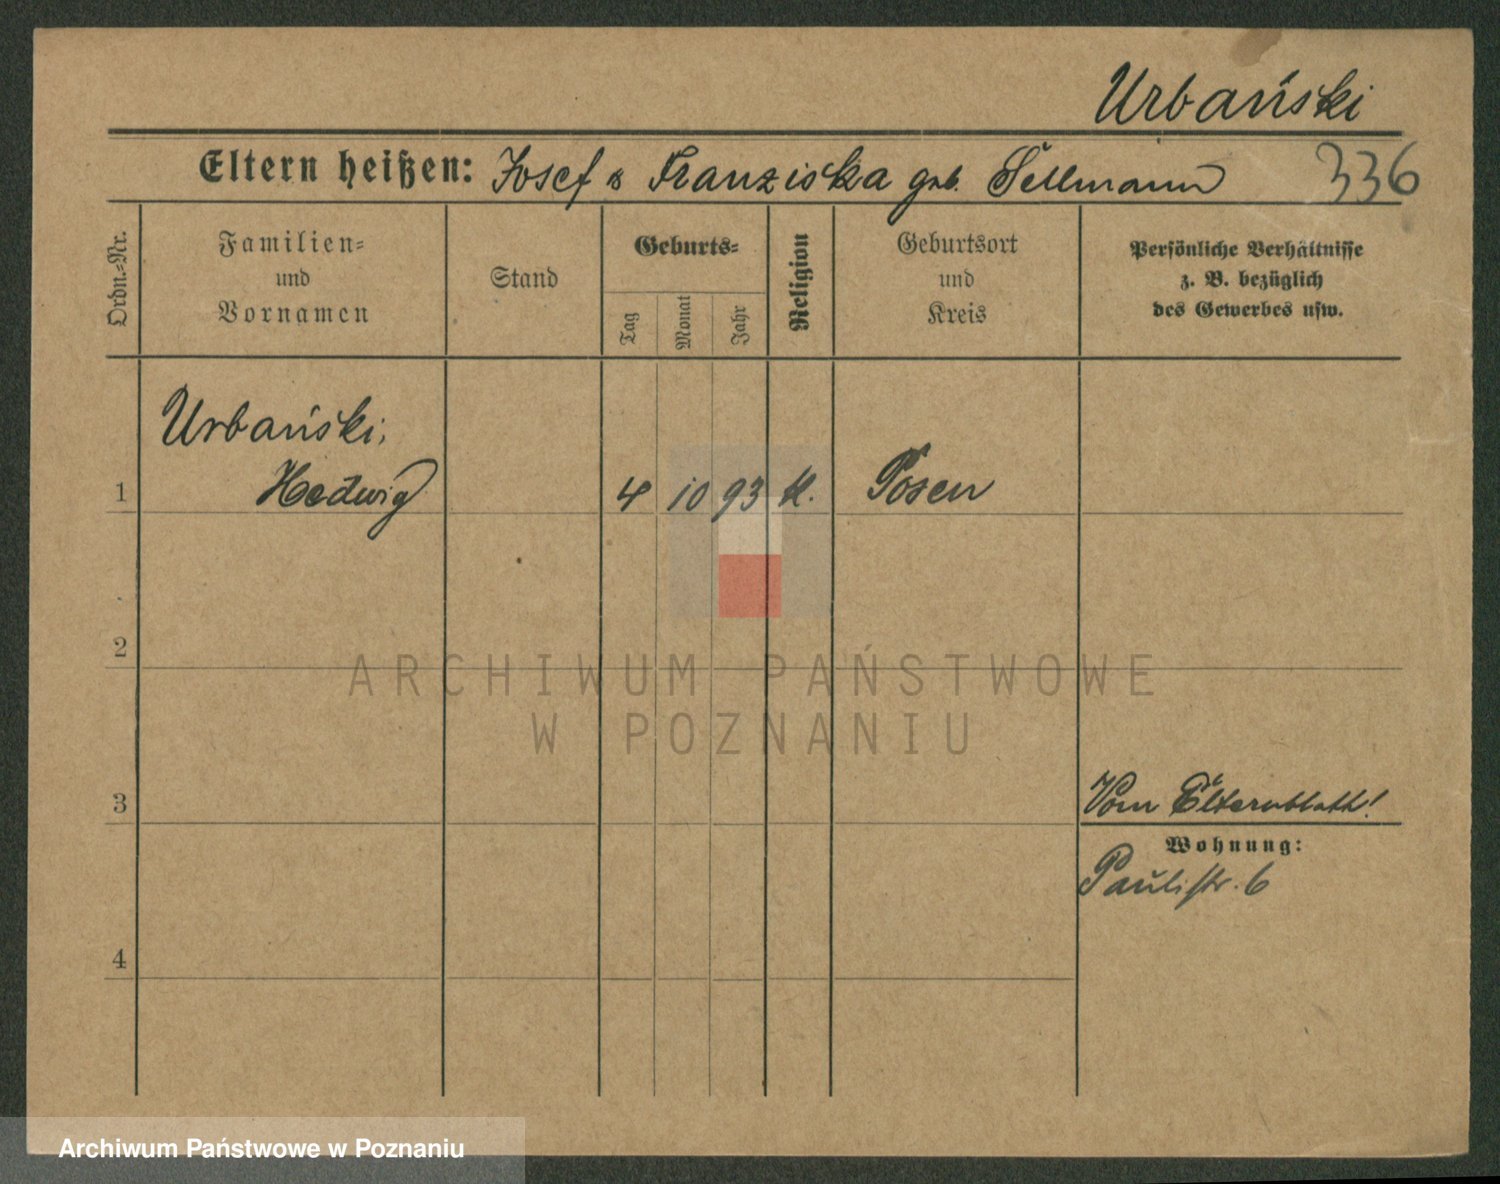 Urbański
Eltern heißen: Josef & Franziska geb. Sellmann 336
Ordn.-Nr.
Familien-
und
Vornamen
Stand
Geburts-
Tag
Monat
Jahr
Religion
Geburtsort
und
Kreis
Persönliche Verhältnisse
z. B. bezüglich
des Gewerbes usw.
Urbański,
1 Hedwig 4 10 93 k. Posen
2
ARCHIWUM PAŃSTWOWE
W POZNANIU
3 Vom Elternblatt!
Wohnung:
Paulistr. 6
4
Archiwum Państwowe w Poznaniu